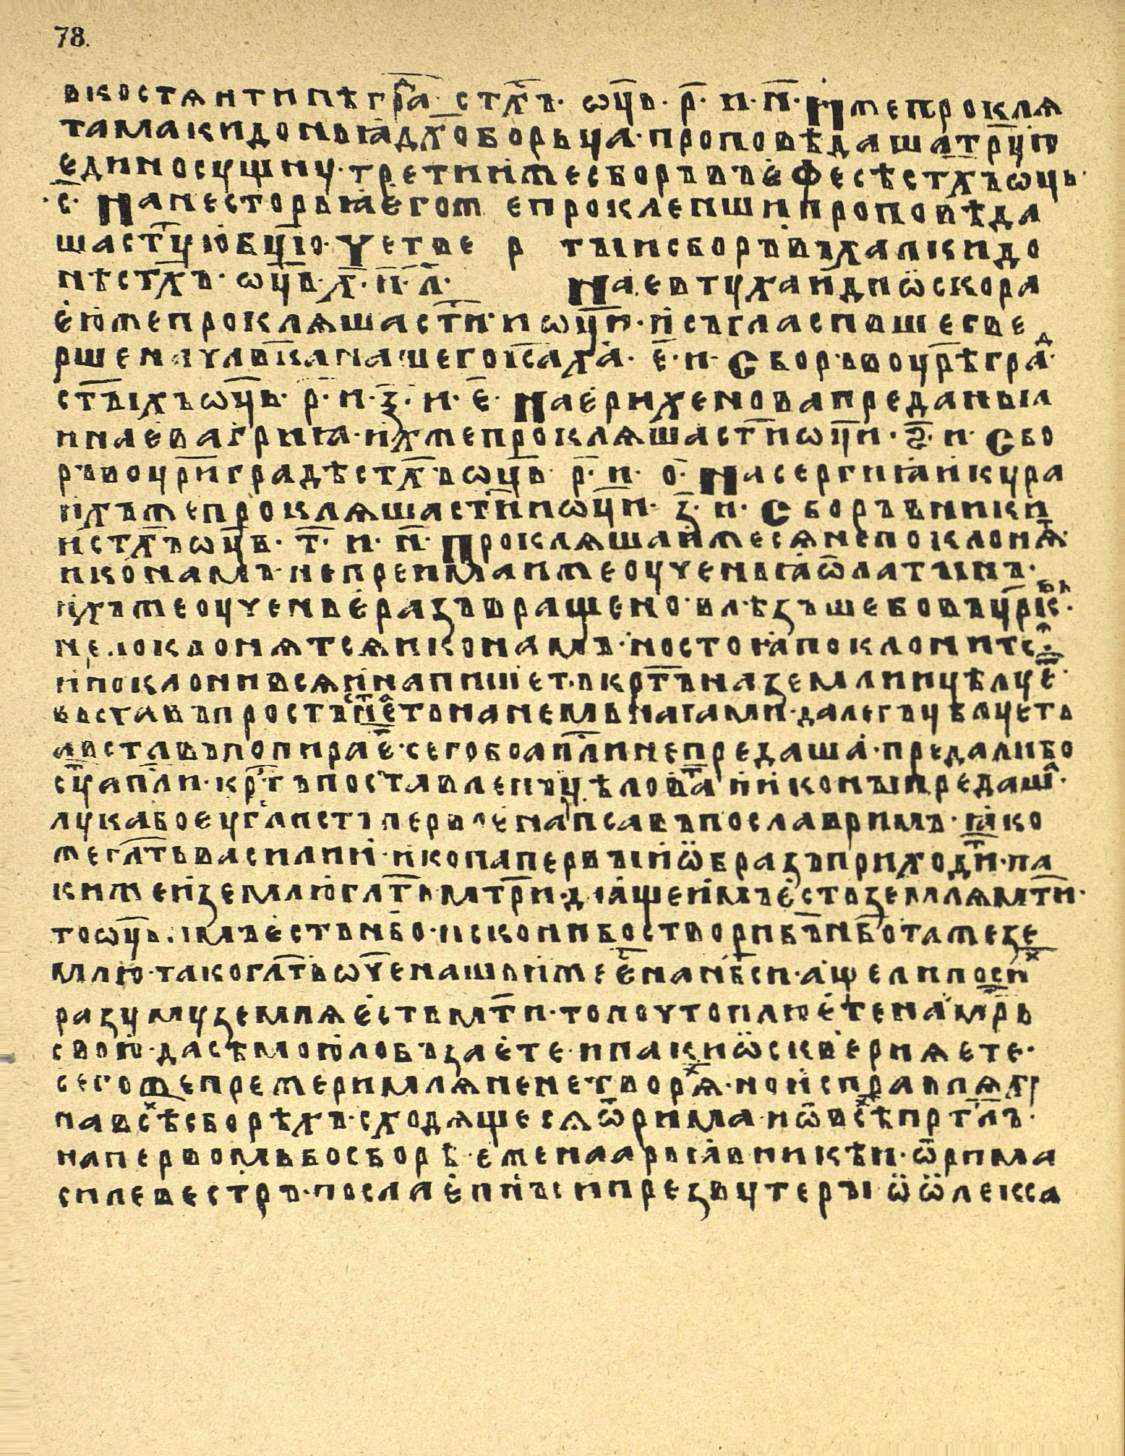 78.
вкостѧнтинѣгра҇д стх҃ъ· ѡц҃ь· р҃· и·н҃· Иже прокля
та македоньꙗ дх҃оборьца· проповѣдаша тр҃цю
единосущну· третии же сборъ въ ефесѣ стх҃ъ ѡць·
·с҃· На несторьꙗ егож епроклѣнши проповѣда
ша ст҃ую бц҃ю· Четве р тыи сборъ въ халкидо
нѣ стх҃ъ· ѡц҃ь· х҃· и· л҃· На евтуха и диѡскора
ею же прокляша ст҃ии ѡц҃и· и съгласивше све
рше бога· нашего іс҃а ха҃· е҃·и· Сборъ во цр҃ѣграⷣ·
ст҃ыхъ ѡц҃ь· р҃·и·ѯ҃·и·е҃· На ерихенова преданьꙗ
и на евагриꙗ· ихже прокляша ст҃ии ѡц҃и· ѕ҃·и· Сбо
ръ во цр҃и градѣ стх҃ъ ѡць р҃·и· о҃· На сергиꙗ и кура
ихъже прокляша ст҃ии ѡци· з҃·и· Сборъ в ники
и стх҃ъ ѡц҃ь· т҃·и·н҃· Прокляша иже ся не поклонѧⷮ·
иконамъ· не преимаи же оученьꙗ ѿ латынъ·
ихъже оученье разъвращено· влѣзъше бо въ цр҃квь·
не поклонятся иконамъ· но стоꙗ поклонитсѧ·
и поклонивсѧ и напишет· вкрт҃ъ на земли и цѣлуеⷮ·
въставъ простъ станетъ на немь ногами· да легъ цѣлуеть
а въставъ попираеⷮ· сего бо апл҃и не предаша· предали бо
суⷮ апл҃и· крⷭ҇тъ поставленъ цѣловати и иконы предашⷶ·
лука бо еуг҃листъ первѣе написавъ посла в римъ· ꙗко
же гл҃ть василии· икона на первыи ѡбразъ приходиⷮ· па
ки же и землю гл҃ть мт҃рии· да аще имъ есть земля мт҃и·
то ѡц҃ь имъ есть нб҃о· искони бо створи бъ҃ нб҃о таже зе
млю· тако гл҃ть ѡч҃е нашь иже еси на нб҃си· аще ли по сиⷯ
разуму земля есть мт҃и· то почто плюете на мт҃рь
свою· да сѣмо ю лобъзаете· и пакы ѡсквѣрняете·
сего же преже римляне не творяⷯ· но исправляхꙋ
на всѣⷯ сборѣхъ· сходящеся ѿ рима· и ѿ всѣⷯ прт҃лъ·
на первомь бо сборѣ· еже на арьꙗ в никѣи· ѿ рима
силевестръ· посла еп҃пы и презвутеры ѿ ѡлекса